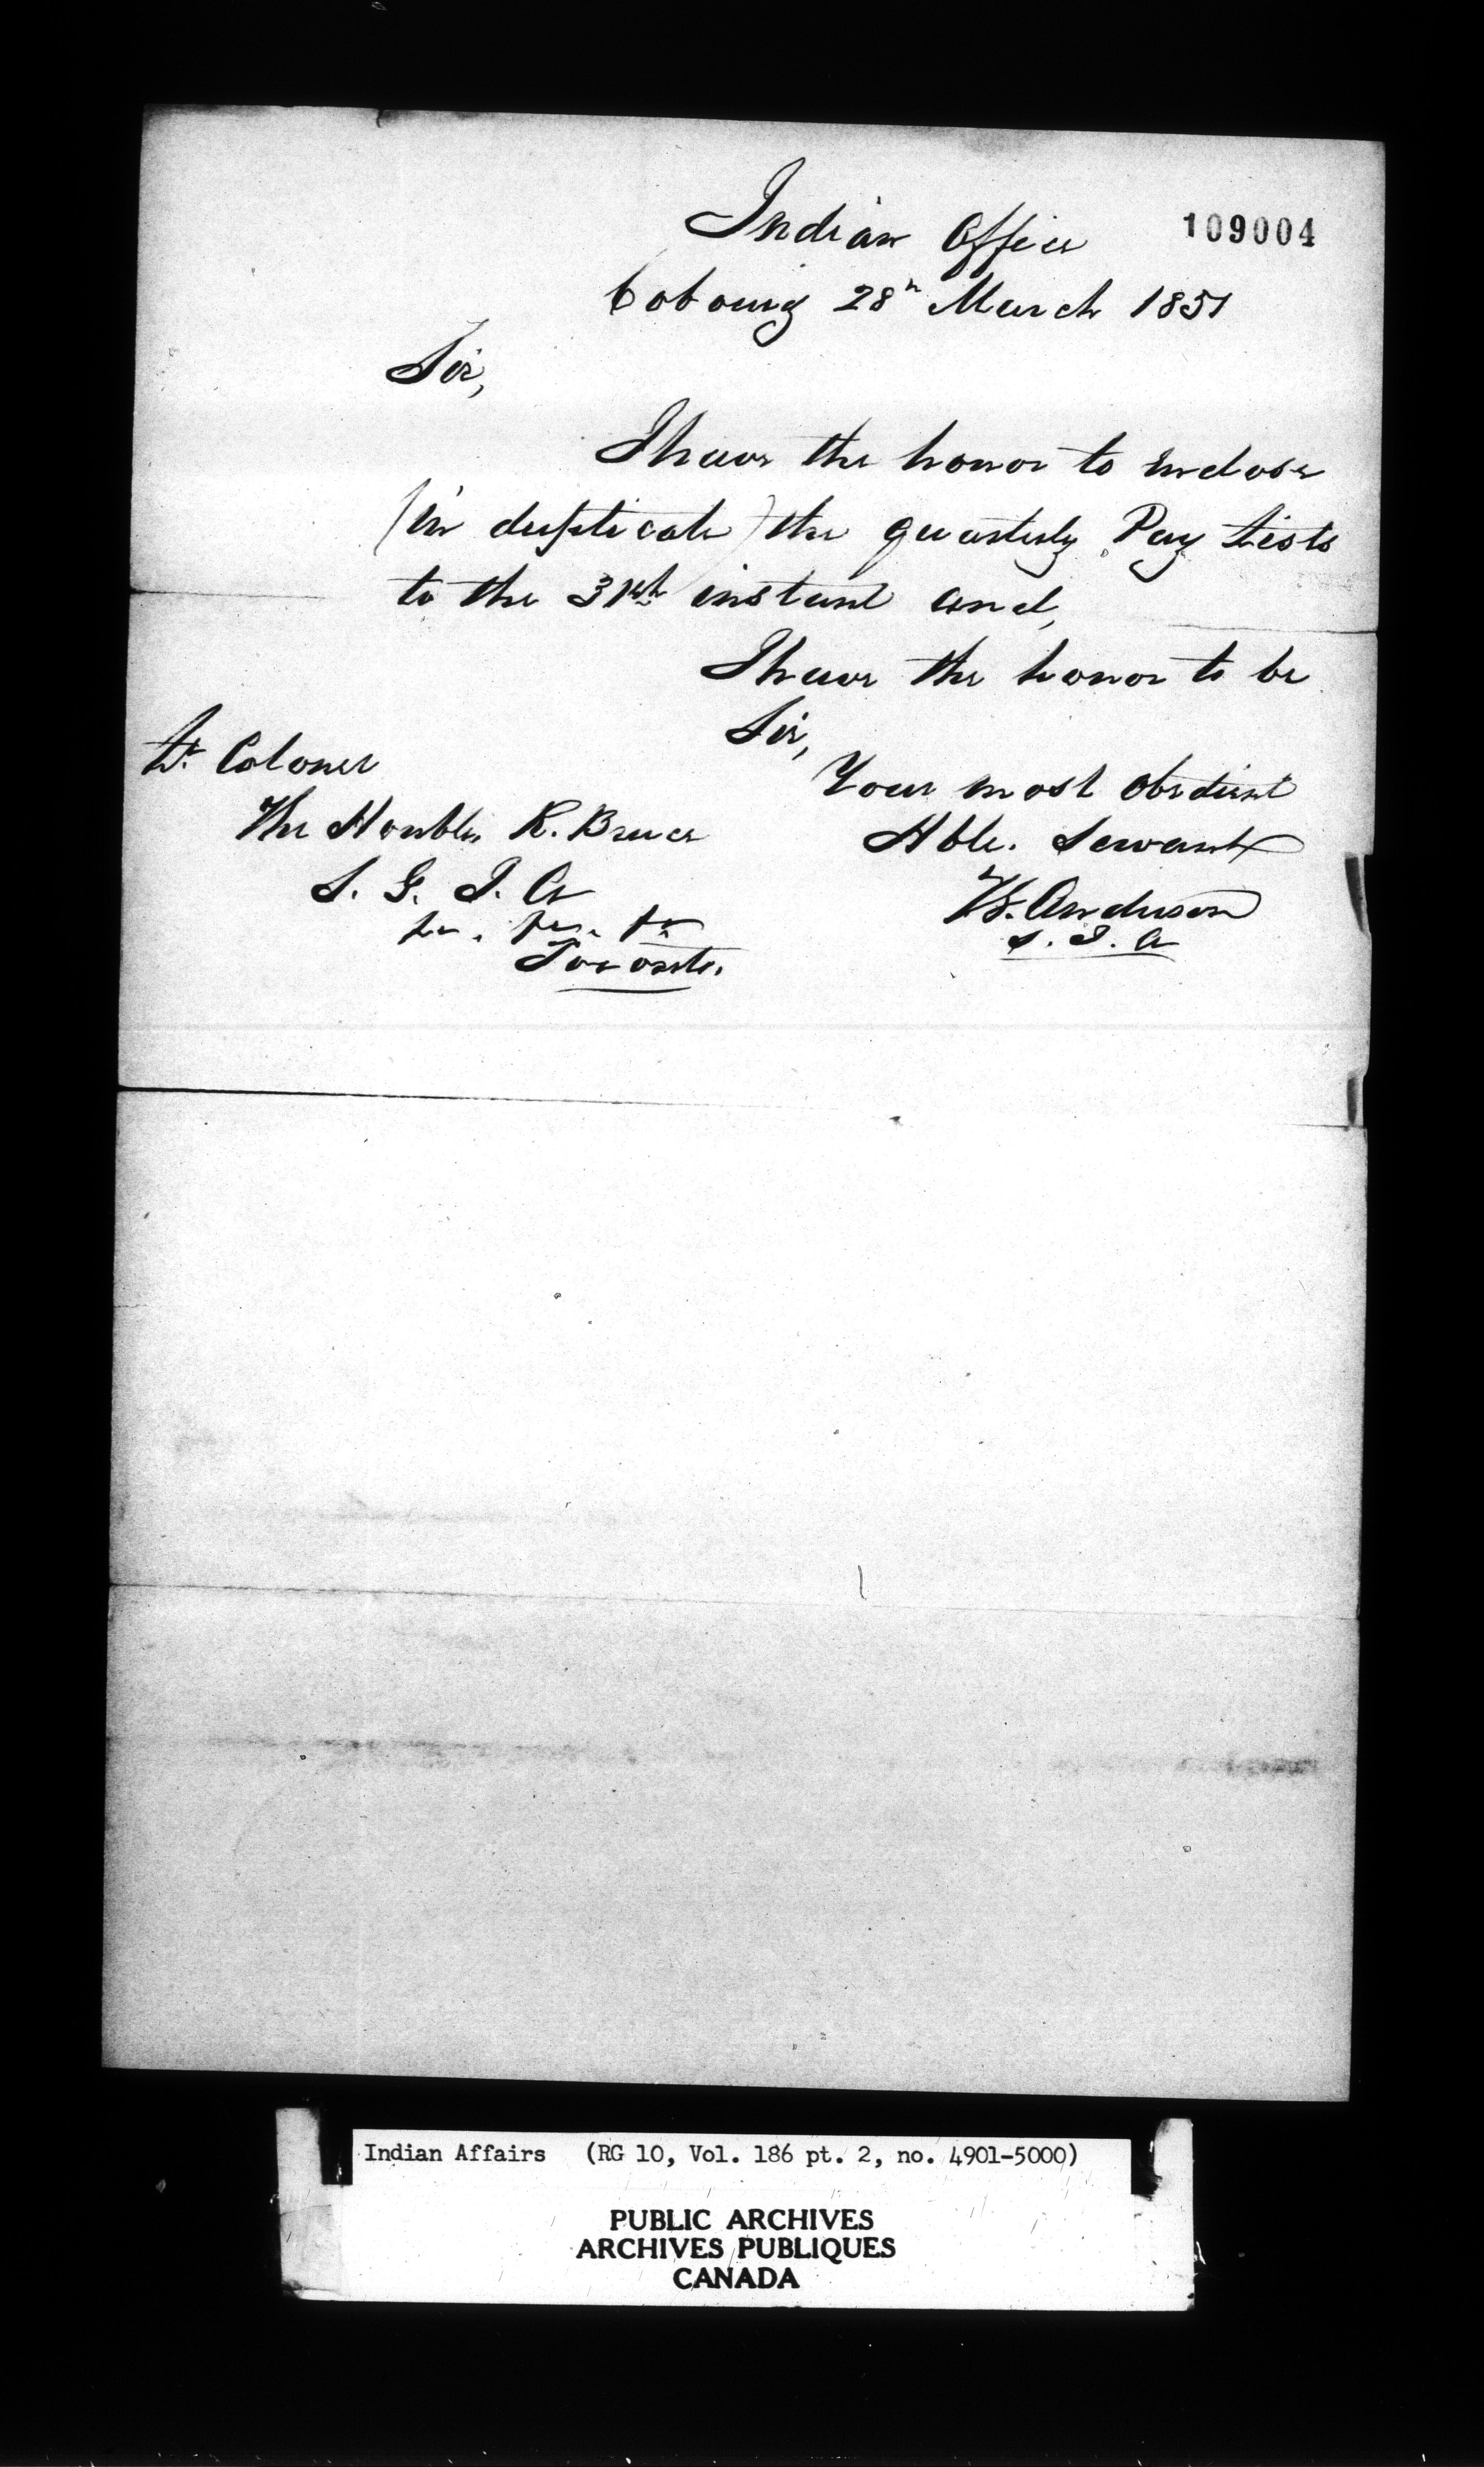 109004
Indian Office
Cobourg 28th March 1851
Sir,
I have the honor to enclose
(in duplicate) the quarterly Pay Lists
to the 31st instant and,
I have the honor to be
Sir,
Your most obedient
Hble. Servant
T.G. Anderson
S. I. A
Lt. Colonel
The Honble R. Bruce
S. G. I. A
Toronto.
Indian Affairs (RG 10, Vol. 186 pt. 2, no. 4901-5000)
PUBLIC ARCHIVES
ARCHIVES PUBLIQUES
CANADA